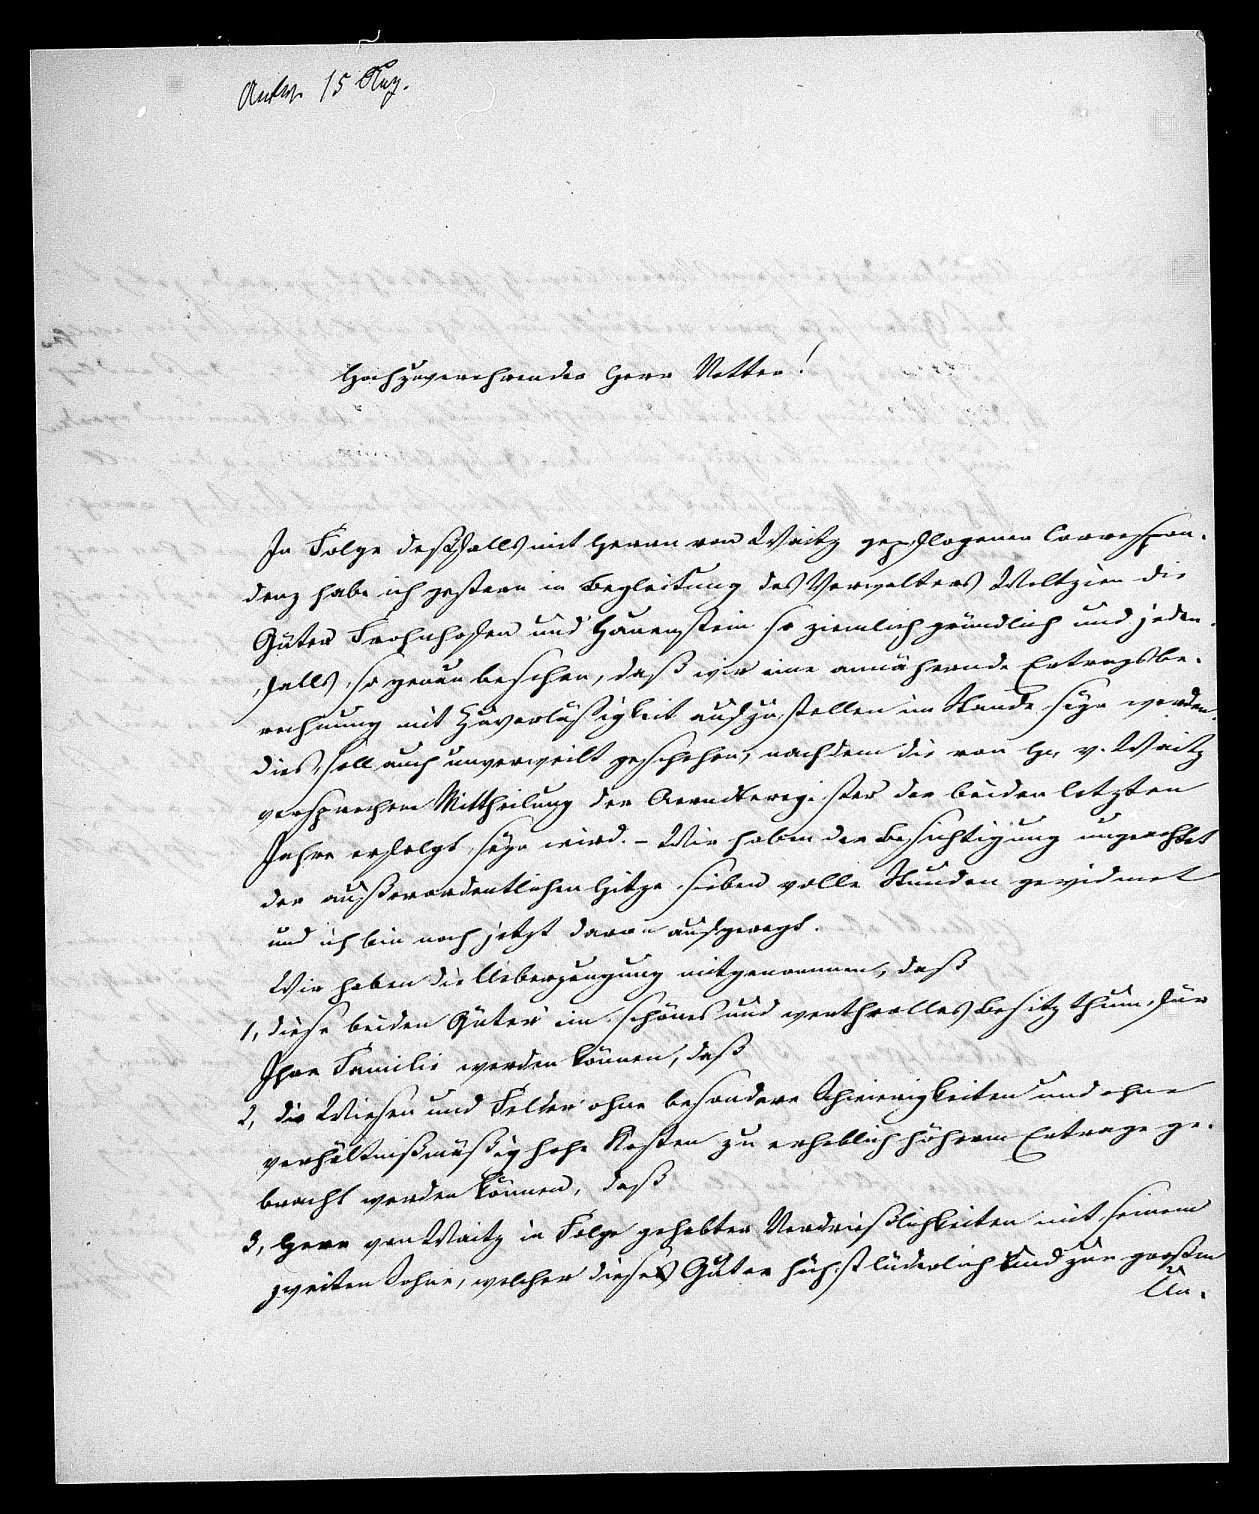 Antw. 15 Aug.
Hochzuverehrender Herr Vetter!
In Folge deßfalls mit Herrn von Waitz gepflogener Correspon-
denz habe ich gestern in Begleitung des Verwalters Woltzien die
Güter Frohnhofen und Hauenstein so ziemlich gründlich und jeden-
falls so genau besehen, daß wir eine annähernde Ertragsbe-
rechnung mit Zuverläßigkeit aufzustellen im Stande seyn werden.
Dies soll auch unverweilt geschehen, nachdem die von Hr. v. Waitz
versprochene Mittheilung der Aerndteregister der beiden letzten
Jahre erfolgt seyn wird. – Wir haben der Besichtigung ungeachtet
der außerordentlichen Hitze sieben volle Stunden gewidmet
und ich bin noch jetzt davon aufgeregt.
Wir haben die Ueberzeugung mitgenommen, daß
1, diese beiden Güter ein schönes und werthvolles Besitzthum für
Ihre Familie werden können, daß
2, die Wiesen und Felder ohne besondere Schwierigkeiten und ohne
verhältnißmäßig hohe Kosten zu erheblich höherem Ertrage ge-
bracht werden können, daß
3, Herr von Waitz in Folge gehabter Verdrießlichkeiten mit seinem
zweiten Sohne, welcher diese Güter höchst lüderlich und zum großen
Un-